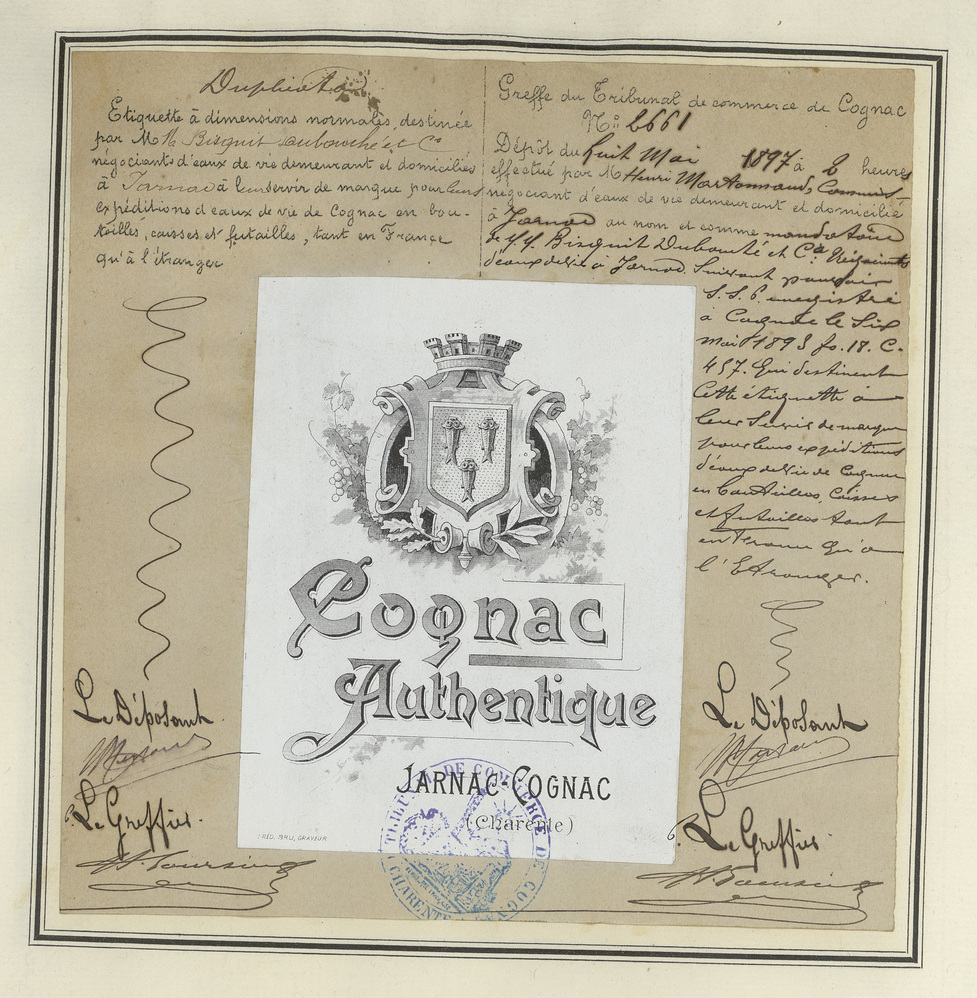 Duplicata
Etiquette à dimensions normales, destinée
par MM Bisquit Dubouché et Cie
négociants d'eaux de vie demeurant et domiciliés
à Jarnac à leur servir de marque pour leurs
expéditions d'eaux de vie de Cognac en bou-
teilles, caisses et futailles, tant en France
qu'à l'étranger
Greffe du Tribunal de commerce de Cognac
No 2661
Dépôt du huit Mai 1897 à 2 heures
effectué par M Henri
négociant d'eaux de vie demeurant et domicilié
à Jarnac au nom et comme mandataire
de Bisquit Dubouché et Cie Négociants
d'eaux de vie à Jarnac, Suivant pouvoir
S. S. P. enregistré
à Cognac le Six
Mai 1893 fo. 18. C.
457. Qui destinent
Cette étiquette à
leur Servir de marque
pour leurs expéditions
d'eaux de Vie de Cognac
en bouteilles, Caisses
et futailles tant
en France qu'à
l'Etranger.
Cognac
Authentique
JARNAC-COGNAC
(Charente)
BRU, GRAVEUR
TRIBUNAL DE COMMERCE DE COGNAC
CHARENTE
Le Déposant
Le Greffier
Le Déposant
Le Greffier